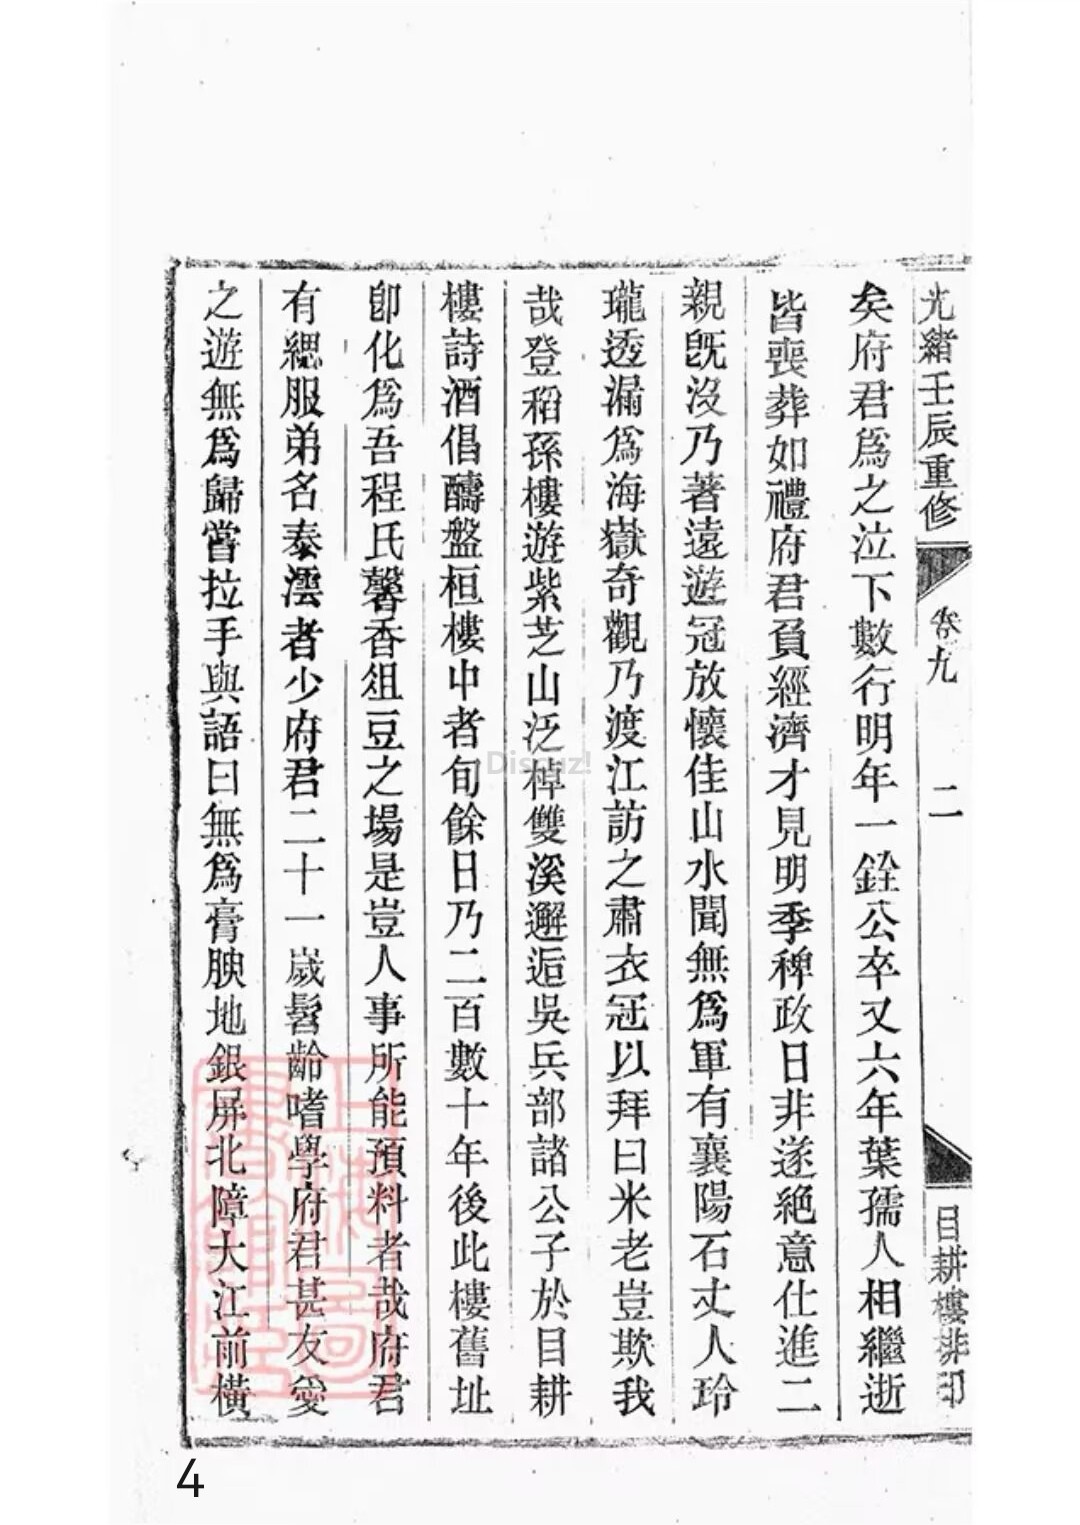 光緒壬辰重修
卷九
二
目耕樓排印
矣府君爲之泣下數行明年一銓公卒又六年葉孺人相繼逝
皆喪葬如禮府君負經濟才見明季稗政日非遂絕意仕進二
親旣沒乃著遠遊冠放懷佳山水聞無爲軍有襄陽石丈人玲
瓏透漏爲海嶽奇觀乃渡江訪之肅衣冠以拜曰米老豈欺我
哉登稻孫樓遊紫芝山泛棹雙溪邂逅吳兵部諸公子於目耕
樓詩酒倡醻盤桓樓中者旬餘日乃二百數十年後此樓舊址
卽化爲吾程氏馨香俎豆之場是豈人事所能預料者哉府君
有緦服弟名泰澐者少府君二十一歲髫齡嗜學府君甚友愛
之遊無爲歸嘗拉手與語曰無爲膏腴地銀屏北障大江前橫
Discuz!
4